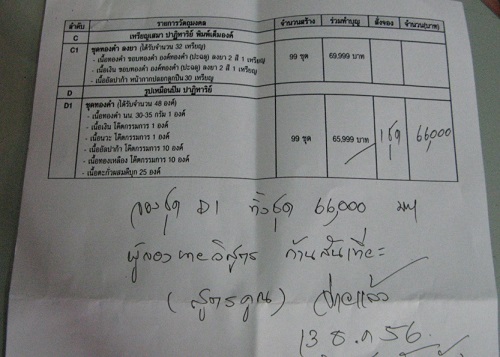 ลำดับ รายการวัตถุมงคล จำนวนสร้าง ร่วมทำบุญ สั่งจอง จำนวน(บาท)
C เหรียญเสมา ปาฏิหาริย์ พิมพ์เต็มองค์
C1 ชุดทองคำ ลงยา (ได้รับจำนวน 32 เหรียญ) 99 ชุด 69,999 บาท
- เนื้อทองคำ ขอบทองคำ องค์ทองคำ (ปะฉลุ) ลงยา 2 สี 1 เหรียญ
- เนื้อเงิน ขอบทองคำ องค์ทองคำ (ปะฉลุ) ลงยา 2 สี 1 เหรียญ
- เนื้ออัลปาก้า หน้ากากปลอกลูกปืน 30 เหรียญ
D รูปเหมือนปั๊ม ปาฏิหาริย์
D1 ชุดทองคำ (ได้รับจำนวน 48 องค์) 99 ชุด 65,999 บาท 1 ชุด 66,000
- เนื้อทองคำ นน 30-35 กรัม 1 องค์
- เนื้อเงิน โค๊ตกรรมการ 1 องค์
- เนื้อนวะ โค๊ตกรรมการ 1 องค์
- เนื้ออัลปาก้า โค๊ตกรรมการ 10 องค์
- เนื้อทองเหลือง โค๊ตกรรมการ 10 องค์
- เนื้อตะกั่วผสมดีบุก 25 องค์
จองชุด D1 ทั้งชุด 66,000 บาท
ผู้จอง นายวิสูตร ก้านสันเทียะ
(สูตรคูณ) จ่ายแล้ว
13 ธ.ค 56